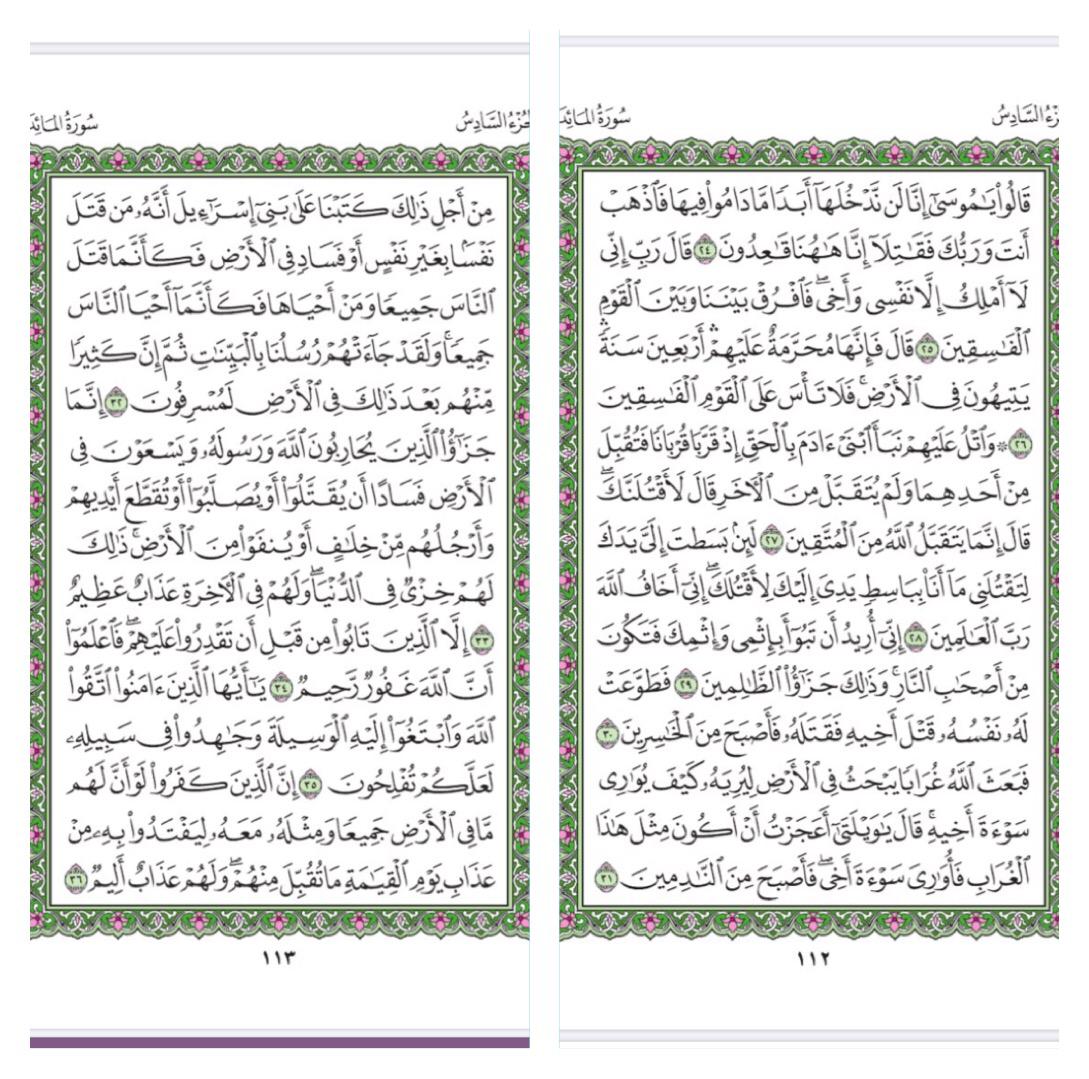 الجزء السادس
سورة المائد
قَالُواْ يَٰمُوسَىٰٓ إِنَّا لَن نَّدۡخُلَهَآ أَبَدٗا مَّا دَامُواْ فِيهَا فَٱذۡهَبۡ
أَنتَ وَرَبُّكَ فَقَٰتِلَآ إِنَّا هَٰهُنَا قَٰعِدُونَ ٢٤ قَالَ رَبِّ إِنِّي
لَآ أَمۡلِكُ إِلَّا نَفۡسِي وَأَخِيۖ فَٱفۡرُقۡ بَيۡنَنَا وَبَيۡنَ ٱلۡقَوۡمِ
ٱلۡفَٰسِقِينَ ٢٥ قَالَ فَإِنَّهَا مُحَرَّمَةٌ عَلَيۡهِمۡۛ أَرۡبَعِينَ سَنَةٗۛ
يَتِيهُونَ فِي ٱلۡأَرۡضِۚ فَلَا تَأۡسَ عَلَى ٱلۡقَوۡمِ ٱلۡفَٰسِقِينَ
٢٦ ۞ وَٱتۡلُ عَلَيۡهِمۡ نَبَأَ ٱبۡنَيۡ ءَادَمَ بِٱلۡحَقِّ إِذۡ قَرَّبَا قُرۡبَانٗا فَتُقُبِّلَ
مِنۡ أَحَدِهِمَا وَلَمۡ يُتَقَبَّلۡ مِنَ ٱلۡأٓخَرِ قَالَ لَأَقۡتُلَنَّكَۖ
قَالَ إِنَّمَا يَتَقَبَّلُ ٱللَّهُ مِنَ ٱلۡمُتَّقِينَ ٢٧ لَئِنۢ بَسَطتَ إِلَيَّ يَدَكَ
لِتَقۡتُلَنِي مَآ أَنَا۠ بِبَاسِطٖ يَدِيَ إِلَيۡكَ لِأَقۡتُلَكَۖ إِنِّيٓ أَخَافُ ٱللَّهَ
رَبَّ ٱلۡعَٰلَمِينَ ٢٨ إِنِّيٓ أُرِيدُ أَن تَبُوٓأَ بِإِثۡمِي وَإِثۡمِكَ فَتَكُونَ
مِنۡ أَصۡحَٰبِ ٱلنَّارِۚ وَذَٰلِكَ جَزَٰٓؤُاْ ٱلظَّٰلِمِينَ ٢٩ فَطَوَّعَتۡ
لَهُۥ نَفۡسُهُۥ قَتۡلَ أَخِيهِ فَقَتَلَهُۥ فَأَصۡبَحَ مِنَ ٱلۡخَٰسِرِينَ ٣٠
فَبَعَثَ ٱللَّهُ غُرَابٗا يَبۡحَثُ فِي ٱلۡأَرۡضِ لِيُرِيَهُۥ كَيۡفَ يُوَٰرِي
سَوۡءَةَ أَخِيهِۚ قَالَ يَٰوَيۡلَتَىٰٓ أَعَجَزۡتُ أَنۡ أَكُونَ مِثۡلَ هَٰذَا
ٱلۡغُرَابِ فَأُوَٰرِيَ سَوۡءَةَ أَخِيۖ فَأَصۡبَحَ مِنَ ٱلنَّٰدِمِينَ ٣١
١١٢
الجزء السادس
سورة المائد
مِنۡ أَجۡلِ ذَٰلِكَ كَتَبۡنَا عَلَىٰ بَنِيٓ إِسۡرَٰٓءِيلَ أَنَّهُۥ مَن قَتَلَ
نَفۡسَۢا بِغَيۡرِ نَفۡسٍ أَوۡ فَسَادٖ فِي ٱلۡأَرۡضِ فَكَأَنَّمَا قَتَلَ
ٱلنَّاسَ جَمِيعٗا وَمَنۡ أَحۡيَاهَا فَكَأَنَّمَآ أَحۡيَا ٱلنَّاسَ
جَمِيعٗاۚ وَلَقَدۡ جَآءَتۡهُمۡ رُسُلُنَا بِٱلۡبَيِّنَٰتِ ثُمَّ إِنَّ كَثِيرٗا
مِّنۡهُم بَعۡدَ ذَٰلِكَ فِي ٱلۡأَرۡضِ لَمُسۡرِفُونَ ٣٢ إِنَّمَا
جَزَٰٓؤُاْ ٱلَّذِينَ يُحَارِبُونَ ٱللَّهَ وَرَسُولَهُۥ وَيَسۡعَوۡنَ فِي
ٱلۡأَرۡضِ فَسَادًا أَن يُقَتَّلُوٓاْ أَوۡ يُصَلَّبُوٓاْ أَوۡ تُقَطَّعَ أَيۡدِيهِمۡ
وَأَرۡجُلُهُم مِّنۡ خِلَٰفٍ أَوۡ يُنفَوۡاْ مِنَ ٱلۡأَرۡضِۚ ذَٰلِكَ
لَهُمۡ خِزۡيٞ فِي ٱلدُّنۡيَاۖ وَلَهُمۡ فِي ٱلۡأٓخِرَةِ عَذَابٌ عَظِيمٌ
٣٣ إِلَّا ٱلَّذِينَ تَابُواْ مِن قَبۡلِ أَن تَقۡدِرُواْ عَلَيۡهِمۡۖ فَٱعۡلَمُوٓاْ
أَنَّ ٱللَّهَ غَفُورٞ رَّحِيمٞ ٣٤ يَٰٓأَيُّهَا ٱلَّذِينَ ءَامَنُواْ ٱتَّقُواْ
ٱللَّهَ وَٱبۡتَغُوٓاْ إِلَيۡهِ ٱلۡوَسِيلَةَ وَجَٰهِدُواْ فِي سَبِيلِهِۦ
لَعَلَّكُمۡ تُفۡلِحُونَ ٣٥ إِنَّ ٱلَّذِينَ كَفَرُواْ لَوۡ أَنَّ لَهُم
مَّا فِي ٱلۡأَرۡضِ جَمِيعٗا وَمِثۡلَهُۥ مَعَهُۥ لِيَفۡتَدُواْ بِهِۦ مِنۡ
عَذَابِ يَوۡمِ ٱلۡقِيَٰمَةِ مَا تُقُبِّلَ مِنۡهُمۡۖ وَلَهُمۡ عَذَابٌ أَلِيمٞ ٣٦
١١٣